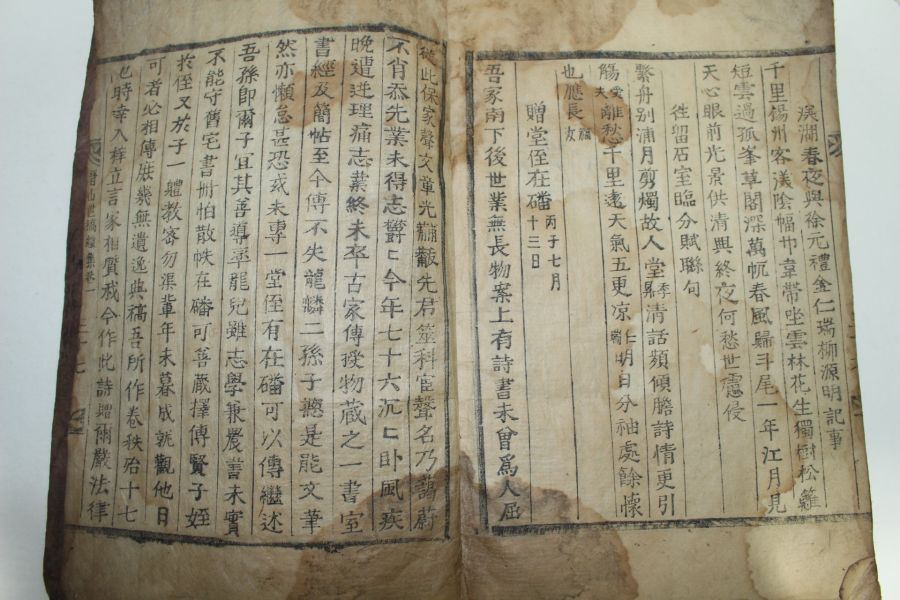 溪湖春夜與徐元禮金仁瑞柳源明記事
千里楊州客漾陰幅巾韋帶坐雲林花生獨樹松籬
短雲過孤峯草閣深萬帆春風歸斗尾一年江月見
天心眼前光景供清興終夜何愁世慮侵
徃留居室臨分賦聯句
繫舟別浦月剪燭故人堂季㬎清話頻傾膽詩情更引
觴叟夫離愁千里遠天氣五更凉仁瑞明日分袖處餘懷
也應長
贈堂侄在磻丙子七月十三日
吾家南下後世業無長物案上有詩書未曾爲人屈
從此保家聲文章先黼黻先君筮科宦聲名乃藹蔚
不肖忝先業未得志欝〻今年七十六沉〻卧風疾
晚遭逆理痛志業終未卒古家傳授物蔵之一書室
書經及簡帖至今傳不失龍麟二孫子總是能文筆
然亦懶怠甚恐或未專一堂侄有在磻可以傳繼述
吾孫卽爾子宜其善導率龍兒雖志學兼農書未實
不能守舊宅書冊怕散帙在磻可善蔵擇傳賢子姪
於侄又於子一軆教審勿渠軰年未暮成就觀他日
可者必相傳庻幾無遺逸典稿吾所作卷秩殆十七
也時幸入梓立言家相賢我今作此詩贈爾嚴法律
世稿續集卷一